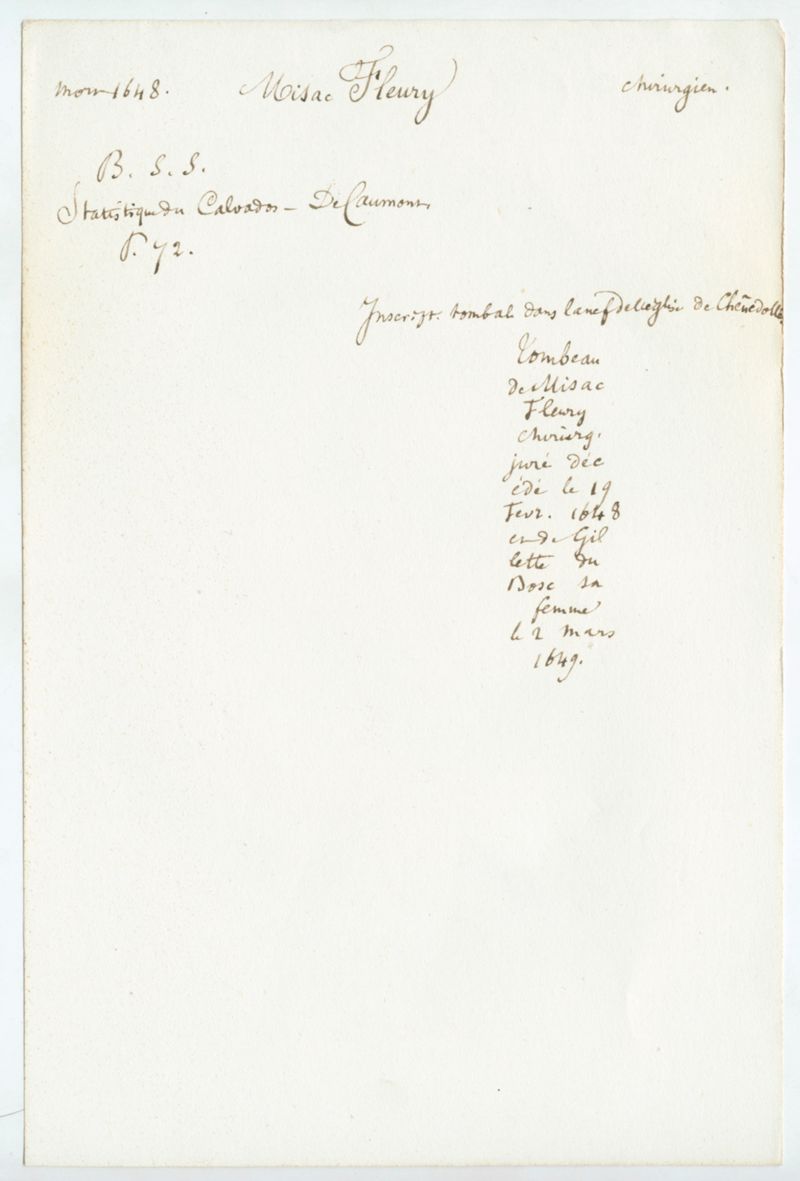 mort 1648. Misac Fleury chirurgien.
B. S. S.
Statistique du Calvados - De Caumont
P. 72.
Inscript. tombale dans la nef de l'église de Chênedollé
Tombeau
de Misac
Fleury
chirurg.
juré déc
édé le 19
Fevr. 1648
et de Gil
lette du
Bosc sa
femme
le 2 mars
1649.